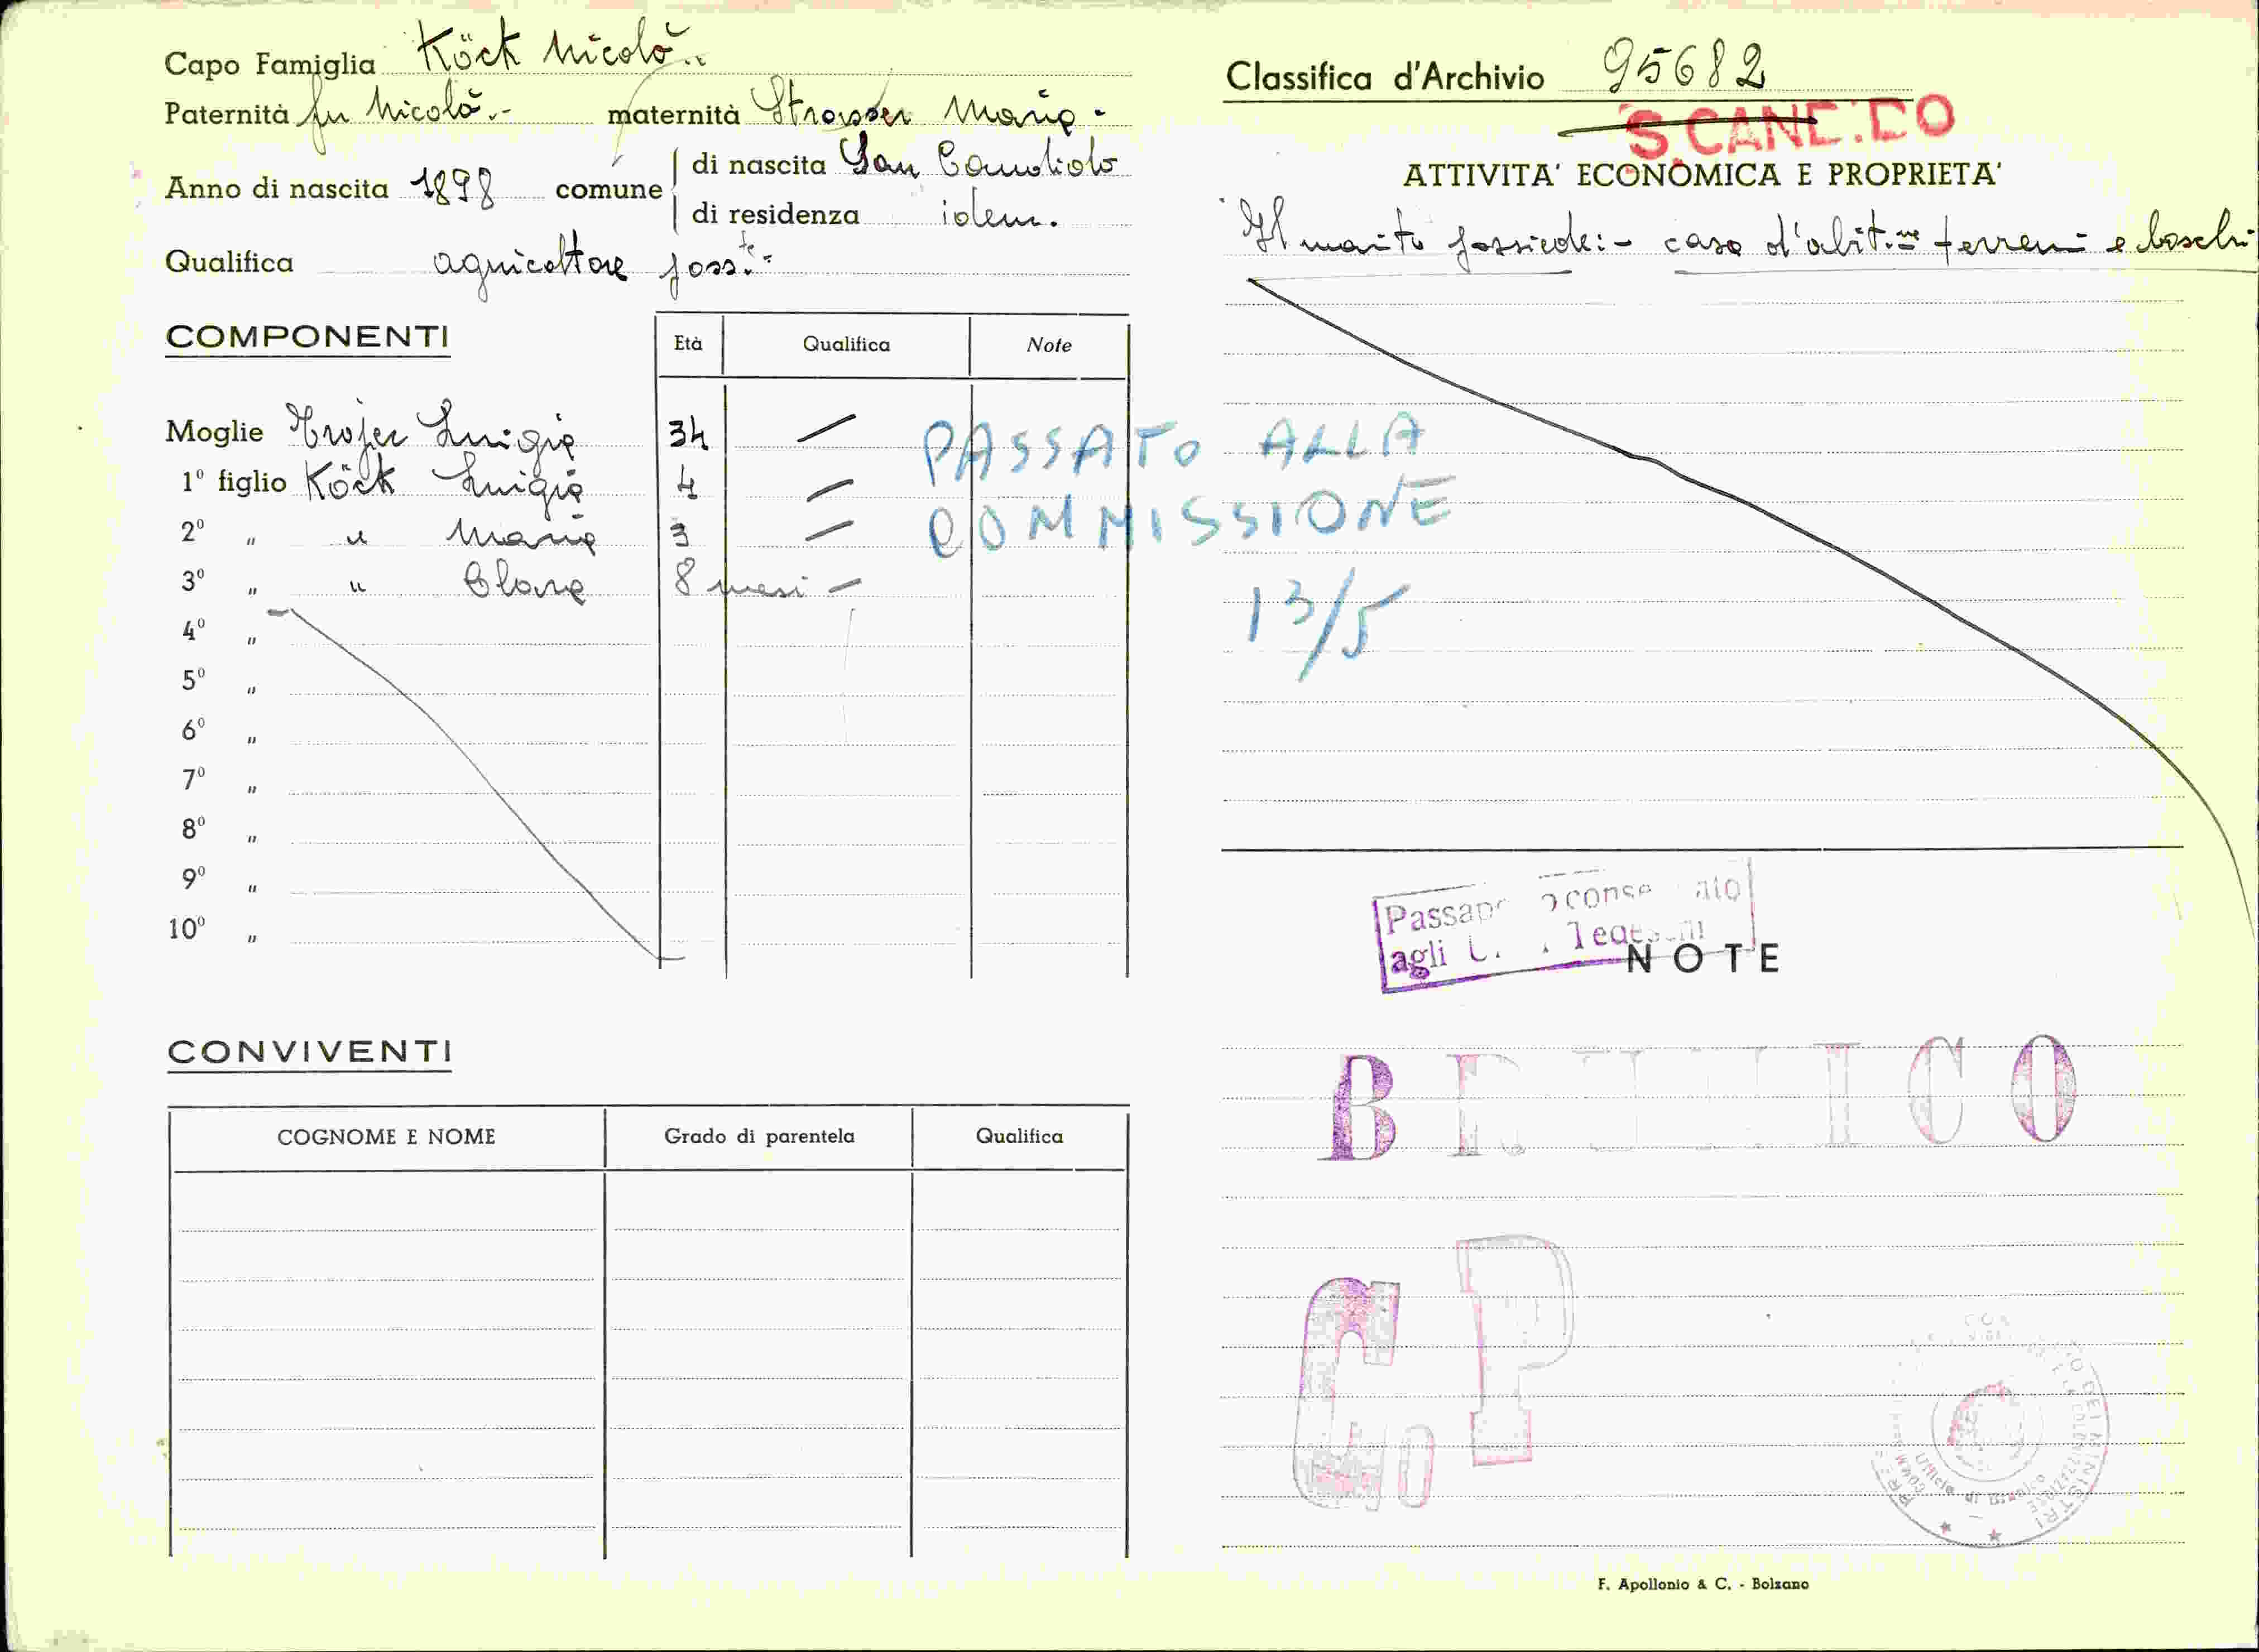 Capo Famiglia Köck Nicolò
Paternità fu Nicolò.- maternità Strasser Maria -
Anno di nascita 1898 comune di nascita San Candido
di residenza idem.
Qualifica agricoltore poss.te
COMPONENTI Età Qualifica Note
Moglie Trojer Luigia 34 —
1º figlio Köck Luigia 4 —
2º " " Maria 3 —
3º " " Clara 8 mesi —
4º "
5º "
6º "
7º "
8º "
9º "
10º "
CONVIVENTI
COGNOME E NOME Grado di parentela Qualifica
Classifica d'Archivio 95682
S.CANDIDO
ATTIVITA' ECONOMICA E PROPRIETA'
Il marito possiede:- casa d'abit.ne terreni e boschi
PASSATO ALLA
COMMISSIONE
13/5
agli
NOTE
BRUNICO
P
F. Apollonio & C. - Bolzano